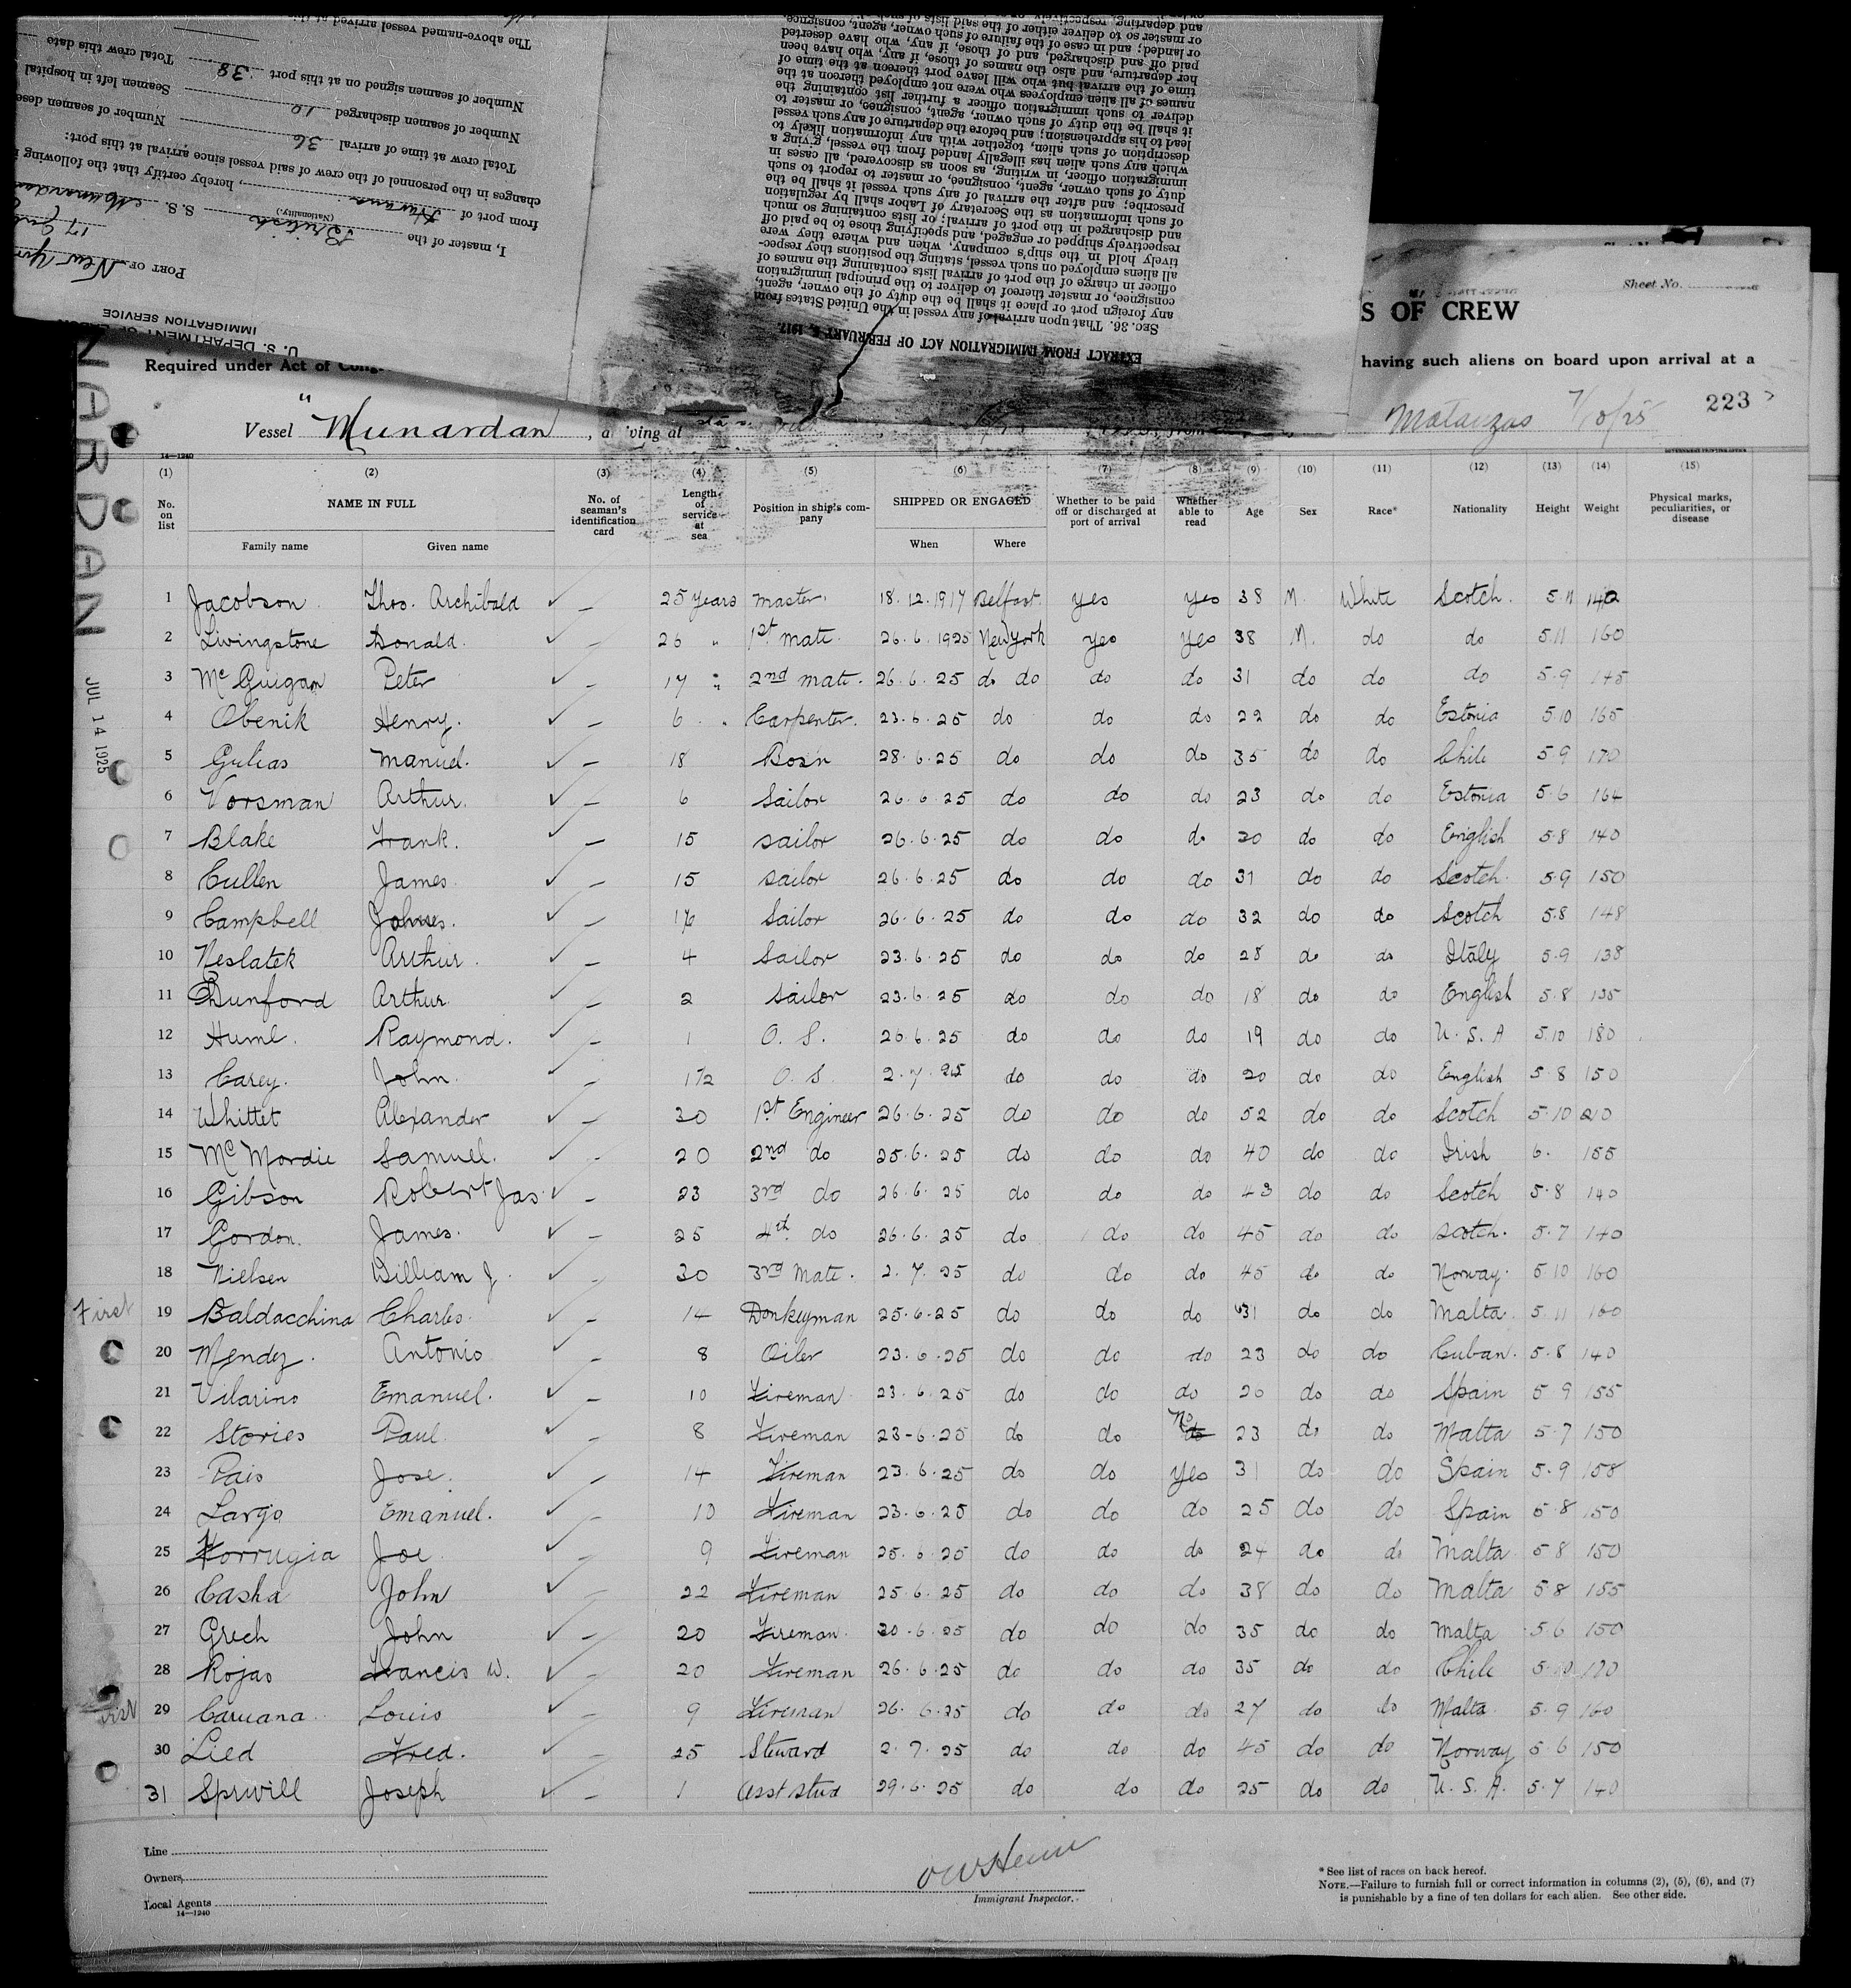 The above-named vessel arrived at this
Number of seamen signed on at this port 38 Total crew this date
Number of seamen discharged 10 Seamen left in hospital
Total crew at time of arrival 36 Number of seamen dese
changes in the personnel of the crew of said vessel since arrival at this port:
from port of Havana, hereby certify that the following
I, master of the British S.S. Munardan
(Nationality.)
PORT OF New York
IMMIGRATION SERVICE
U. S. DEPARTMENT OF LABOR
EXTRACT FROM IMMIGRATION ACT OF FEBRUARY 5, 1917.
SEC. 36. That upon arrival of any vessel in the United States from
any foreign port or place it shall be the duty of the owner, agent,
consignee, or master thereof to deliver to the principal immigration
officer in charge of the port of arrival lists containing the names of
all aliens employed on such vessel, stating the positions they respec-
tively hold in the ship's company, when and where they were
respectively shipped or engaged, and specifying those to be paid off
and discharged in the port of arrival; or lists containing so much
of such information as the Secretary of Labor shall by regulation
prescribe; and after the arrival of any such vessel it shall be the
duty of such owner, agent, consignee, or master to report to such
immigration officer, in writing, as soon as discovered, all cases in
which any such alien has illegally landed from the vessel, giving a
description of such alien, together with any information likely to
lead to his apprehension; and before the departure of any such vessel
it shall be the duty of such owner, agent, consignee, or master to
deliver to such immigration officer a further list containing the
names of all alien employees who were not employed thereon at the
time of the arrival but who will leave port thereon at the time of
her departure, and also the names of those, if any, who have been
paid off and discharged, and of those, if any, who have deserted
or landed; and in case of the failure of such owner, agent, consignee,
or master so to deliver either of the said lists of such aliens arriving
and departing, respectively,
Sheet No.
S OF CREW
Required under Act of Cong
having such aliens on board upon arrival at a
Vessel "Munardan, arriving at
Matanzas 7/10/25 223
NARDAN
JUL 14 1925
14—1240
(1) (2) (3) (4) (5) (6) (7) (8) (9) (10) (11) (12) (13) (14) (15)
No. on list NAME IN FULL No. of seaman's identification card Length of service at sea Position in ship's com-pany SHIPPED OR ENGAGED Whether to be paid off or discharged at port of arrival Whether able to read Age Sex Race* Nationality Height Weight Physical marks, peculiarities, or disease
Family name Given name When Where
1 Jacobson Thos. Archibald ✓ – 25 years Master. 18.12.1917 Belfast. yes yes 38 M. White Scotch. 5.11 140
2 Livingstone Donald. ✓ – 26 " 1st mate. 26.6.1925 New York yes yes 38 M. do do 5.11 160
3 McGuigan Peter ✓ – 17 " 2nd mate. 26.6.25 do do do do 31 do do do 5.9 145
4 Obenik Henry. ✓ – 6 " Carpenter. 23.6.25 do do do 22 do do Estonia 5.10 165
5 Gulias Manuel. ✓ – 18 Bosn 28.6.25 do do do 35 do do Chile 5.9 170
6 Vorsman Arthur. ✓ – 6 Sailor 26.6.25 do do do 23 do do Estonia 5.6 164
7 Blake Frank. ✓ – 15 sailor 26.6.25 do do do 20 do do English 5.8 140
8 Cullen James ✓ – 15 sailor 26.6.25 do do do 31 do do Scotch. 5.9 150
9 Campbell ✓ – 16 Sailor 26.6.25 do do do 32 do do Scotch 5.8 148
10 Neslatek Arthur. ✓ – 4 Sailor 23.6.25 do do do 28 do do Italy 5.9 138
11 Dunford Arthur. ✓ – 2 Sailor 23.6.25 do do do 18 do do English 5.8 135
12 Hume. Raymond. ✓ – 1 O. S. 26.6.25 do do do 19 do do U.S.A 5.10 180
13 Carey. John. ✓ – 1½ O. S. 2.7.25 do do do 20 do do English 5.8 150
14 Whittet Alexander ✓ – 30 1st Engineer 26.6.25 do do do 52 do do Scotch 5.10 210
15 McMordie Samuel. ✓ – 20 2nd do 25.6.25 do do do 40 do do Irish 6. 155
16 Gibson Robert Jas. ✓ – 23 3rd do 26.6.25 do do do 43 do do Scotch 5.8 140
17 Gordon. James. ✓ – 25 4th do 26.6.25 do do do 45 do do Scotch. 5.7 140
18 Nielsen William J. ✓ – 30 3rd Mate. 2.7.25 do do do 45 do do Norway. 5.10 160
First 19 Baldacchina Charles. ✓ – 14 Donkeyman 25.6.25 do do do 31 do do Malta. 5.11 160
20 Mendez. Antonio ✓ – 8 Oiler 23.6.25 do do do 23 do do Cuban. 5.8 140
21 Vilarino Emanuel. ✓ – 10 Fireman 23.6.25 do do do 26 do do Spain 5.9 155
22 Stories Paul ✓ – 8 Fireman 23-6.25 do do No do 23 do do Malta 5.7 150
23 Pais Jose. ✓ – 14 Fireman 23.6.25 do do yes 31 do do Spain 5.9 158
24 Largo Emanuel. ✓ – 10 Fireman 23.6.25 do do do 25 do do Spain 5.8 150
25 Forrugia Joe ✓ – 9 Fireman 25.6.25 do do do 24 do do Malta 5.8 150
26 Casha John ✓ – 22 Fireman 25.6.25 do do do 38 do do Malta 5.8 155
27 Grech John ✓ – 20 Fireman 20.6.25 do do do 35 do do Malta 5.6 150
28 Rojas Francis W. ✓ – 20 Fireman 26.6.25 do do do 35 do do Chile 5.10 170
First 29 Caruana Louis ✓ – 9 Fireman 26.6.25 do do do 27 do do Malta 5.9 160
30 Lied Fred. ✓ – 25 Steward 2.7.25 do do do 45 do do Norway 5.6 150
31 Sprwill Joseph ✓ – 1 Asst Stwd 29.6.25 do do do 25 do do U.S.A. 5.7 140
Line
Owners
Local Agents
14—1240
Immigrant Inspector.
* See list of races on back hereof.
NOTE.—Failure to furnish full or correct information in columns (2), (5), (6), and (7)
is punishable by a fine of ten dollars for each alien. See other side.